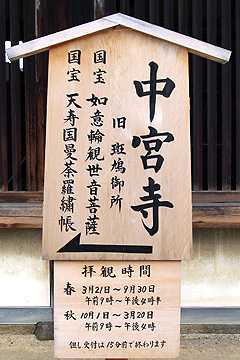 中宮寺
旧 斑鳩御所
国宝 如意輪観世音菩薩
国宝 天寿国曼荼羅繡帳
拝観時間
春 3月21日〜9月30日
午前9時〜午後4時半
秋 10月1日〜3月20日
午前9時〜午後4時
但し受付は15分前で終わります